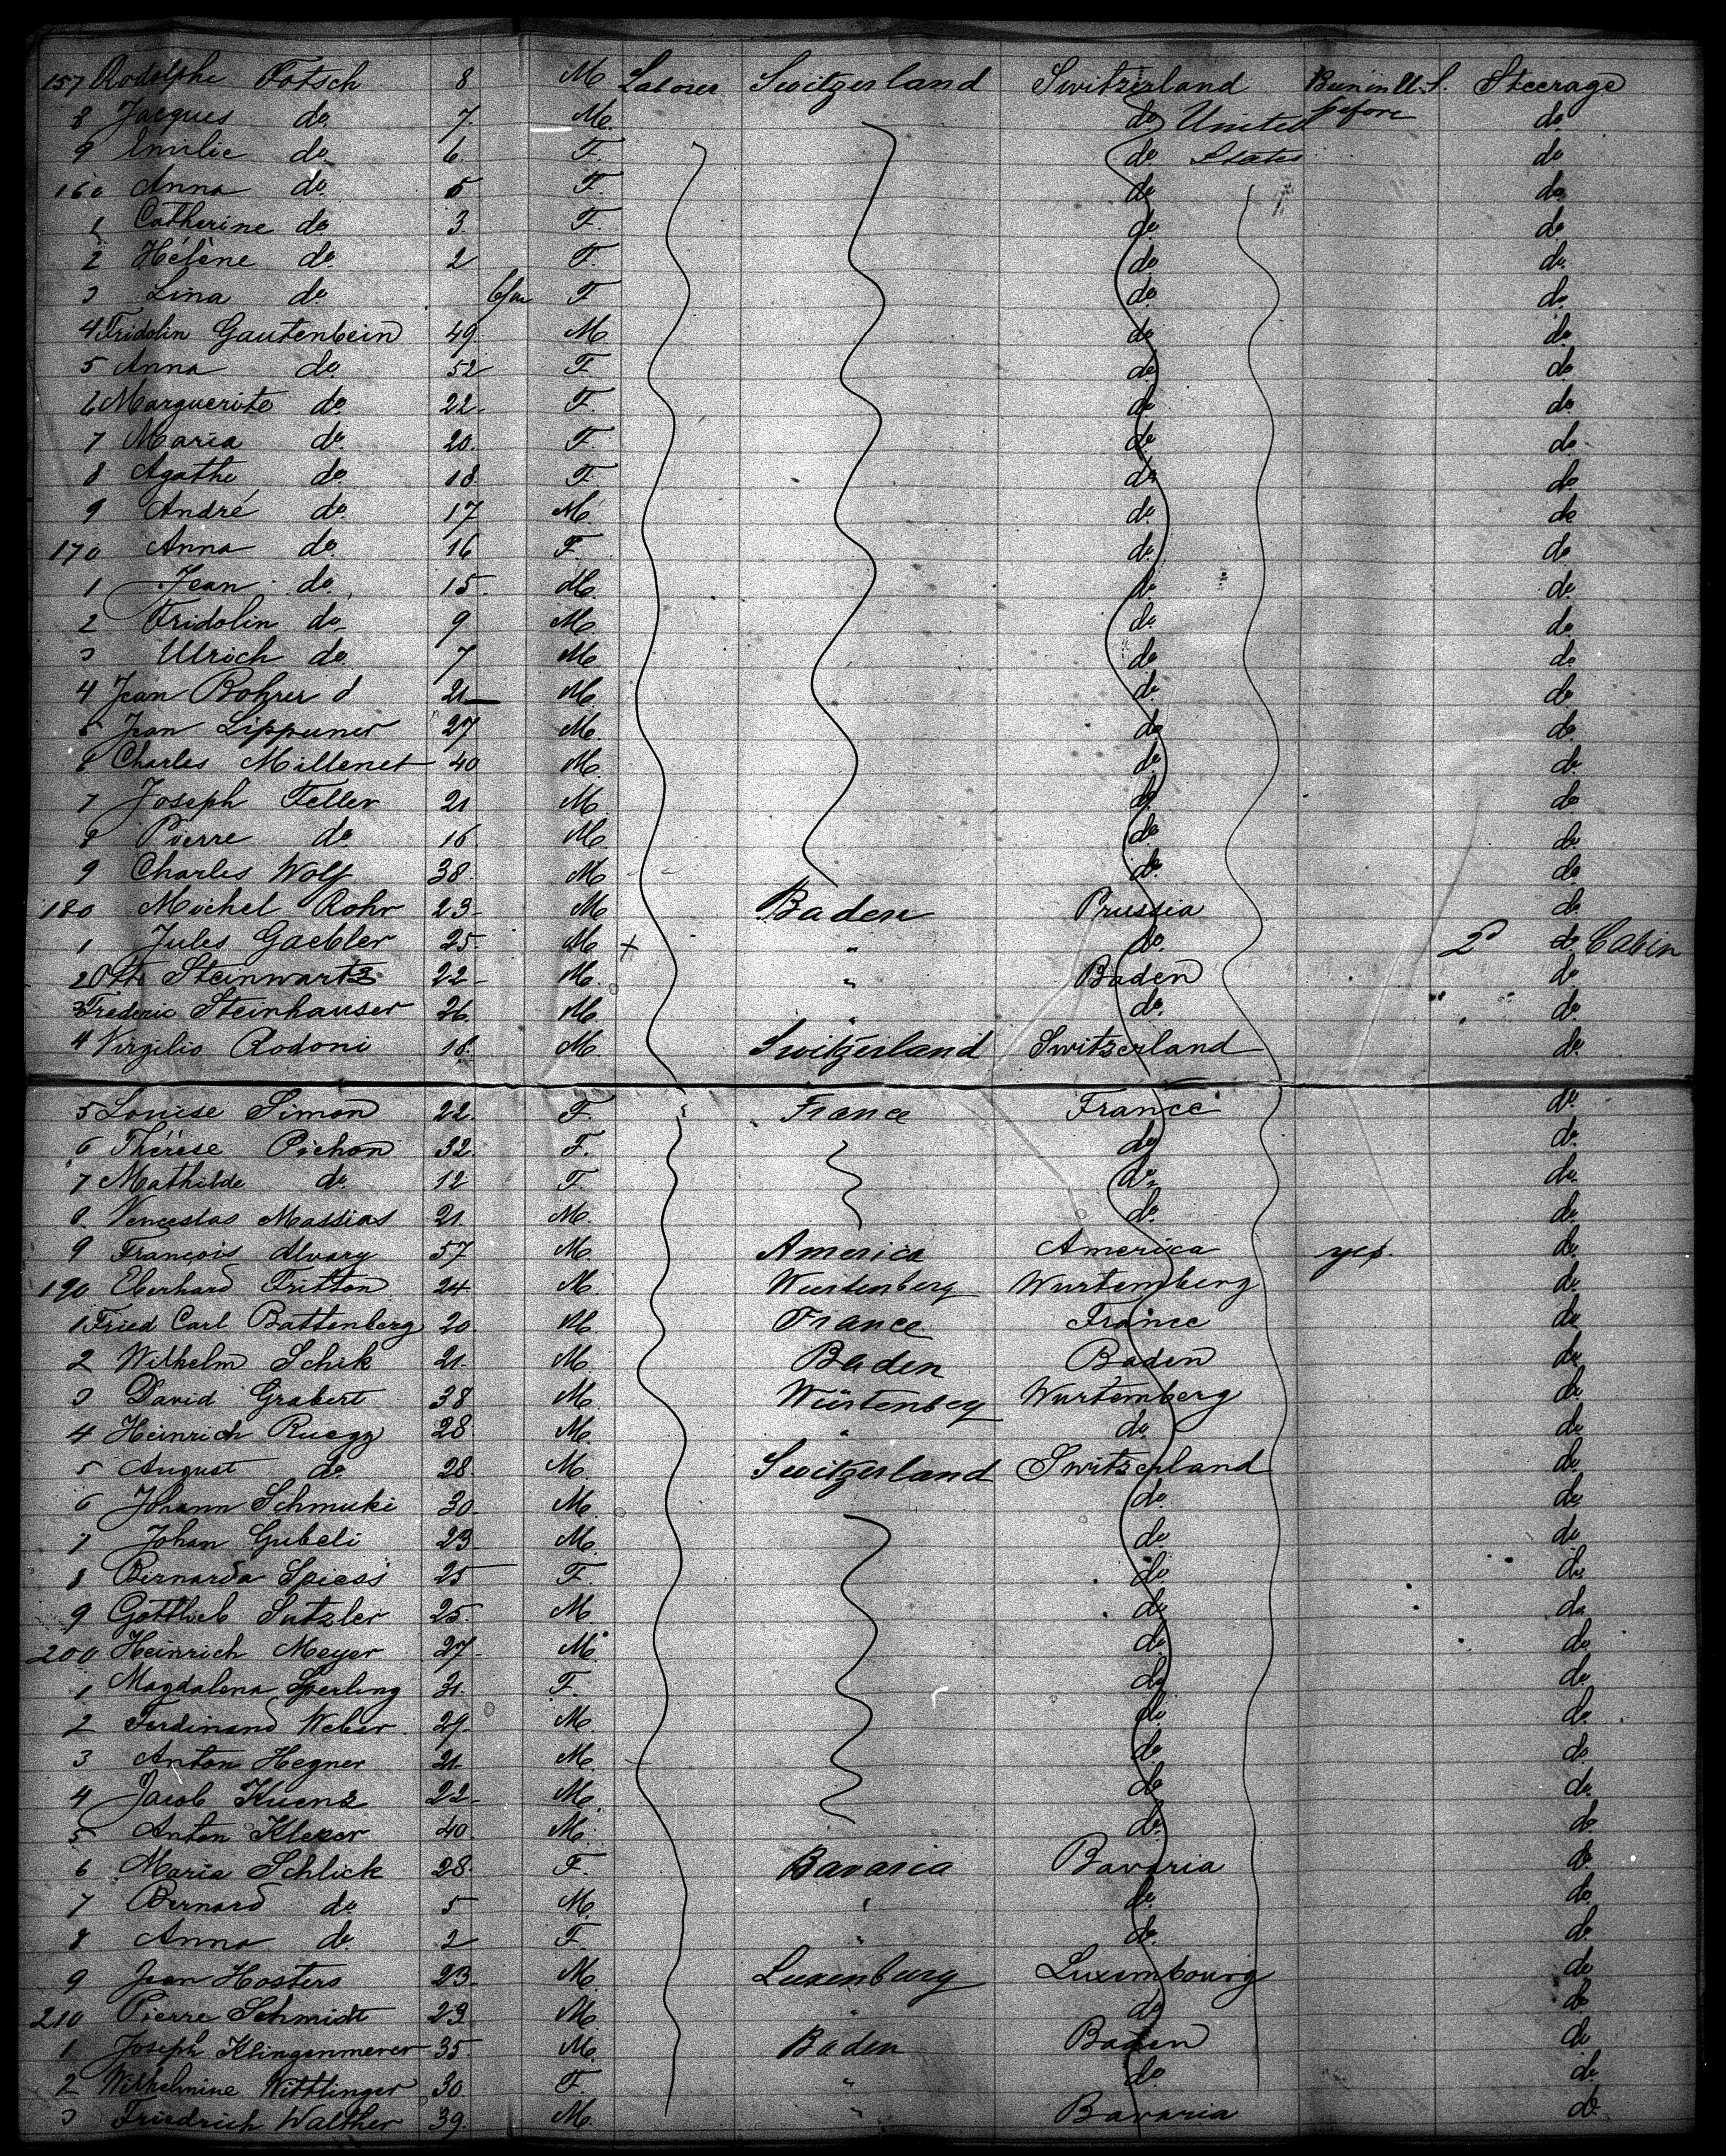 157 Rodolphe Fotsch 8 M Laborer Switzerland Switzerland Been in U.S. before Steerage
8 Jacques do 7 M. do United do
9 Emilie do 6. F. do States do
160 Anna do. 5 F. do do
1 Catherine do 3. F. do do
2 Hélène do. 2 F. do do.
3 Lina do. 6/m F do do.
4 Fridolin Gautenbein 49. M. do do
5 Anna do. 52 F. do do.
6 Marguerite do. 22. F. do do
7 Maria do. 20. F. do do.
8 Agathe do. 18. F. do do.
9 André do. 17 M. do. do
170 Anna do. 16 F. do. do
1 Jean do. 15. M. do do.
2 Fridolin do. 9 M. do. do.
3 Ulrich do. 7 M. do do.
4 Jean Rohrer d 21 M. do do
5 Jean Lippuner 27 M. do do.
6 Charles Millenet 40 M. do do.
7 Joseph Feller 21 M. do do
8 Pierre do. 16 M. do do.
9 Charles Wolf 38. M do. do
180 Michel Rohr 23 M Baden Prussia do
1 Jules Gaebler 25. M + " do. 2d do. Cabin
2 Otto Steinwartz 22 M. " Baden do
3 Frederic Steinhauser 26. M. " do. do.
4 Virgilio Rodoni 18. M. Switzerland Switzerland do.
5 Louise Simon 22. F. France France do.
6 Thérèse Pichon 32. F. do do.
7 Mathilde do. 12 F. do. do.
8. Venceslas Massias 21. M. do. do.
9 François Alvary 57 M. America America yes. do.
190 Eberhard Fritton 24 M. Wurtenberg Wurtemberg do.
1 Fried Carl Battenberg 20. M. France France do
2 Wilhelm Schik 21. M. Baden Baden do
3 David Grabert 38 M. Würtenbeg Wurtemberg do
4 Heinrich Ruegg 28. M. " do. do
5 August do. 28. M. Switzerland Switzerland do
6 Johann Schmuki 30. M. do. do.
7 Johan Gubeli 23 M. do do
8 Bernarda Spiess 25 F. do do
9 Gottlieb Sutzler 25. M. do do
200 Heinrich Meyer 27. M. do do.
1 Magdalena Sperling 31. F. do do.
2 Ferdinand Weber. 29. M. do do.
3 Anton Hegner 21. M. do do.
4 Jacob Kuenz 22. M. do do.
5 Anton Kleser 40. M. do do.
6 Maria Schlick 28. F. Bavaria Bavaria do.
7 Bernard do 5 M. " do. do.
8 Anna do. 2 F. " do. do
9 Jean Hosters 23. M. Luxenburg Luxembourg do
210 Pierre Schmidt 23. M. " do do
1 Joseph Klingenmerer 35. M. Baden Baden do
2 Wilhelmine Wittlinger 30. F. " do. do
3 Friedrich Walther 39. M. " Bavaria do.